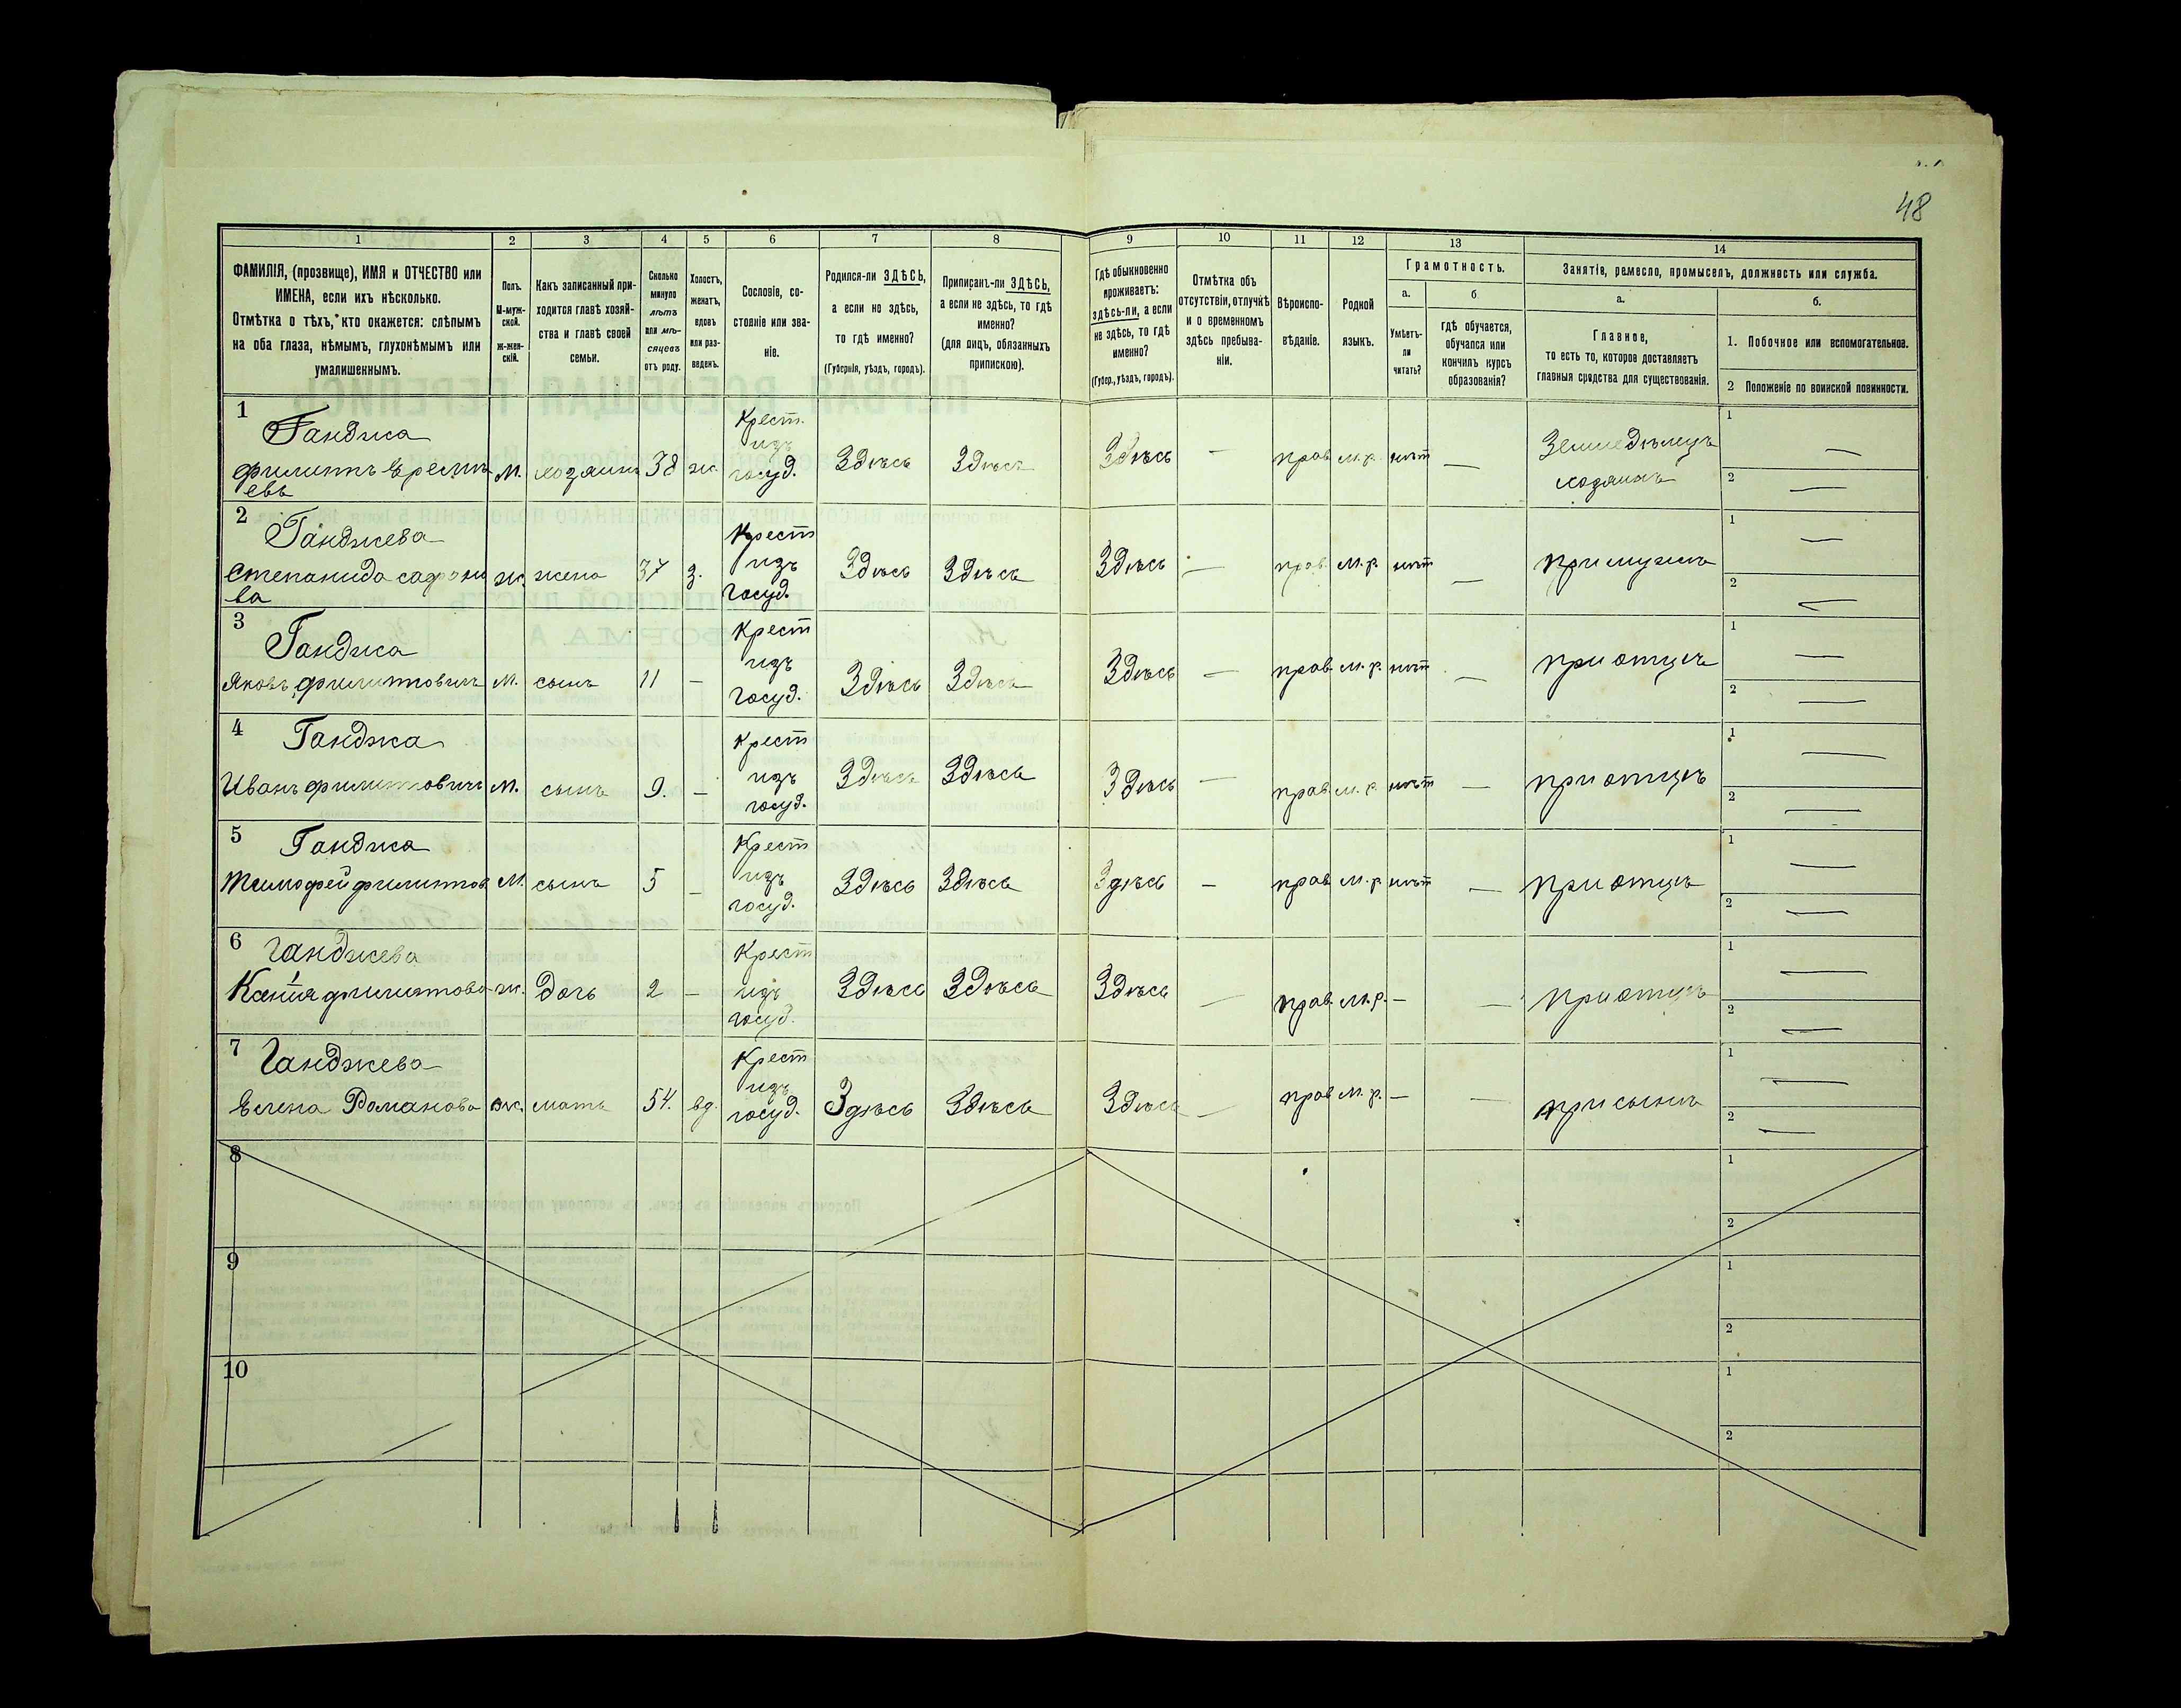 48
1 2 3 4 5 6 7 8 9 10 11 12 13 14
ФАМИЛІЯ, (прозвище), ИМЯ и ОТЧЕСТВО или
ИМЕНА, если ихъ нѣсколько.
Отмѣтка о тѣхъ, кто окажется: слѣпымъ
на оба глаза, нѣмымъ, глухонѣмымъ или
умалишеннымъ.
Полъ.
М-муж-
ской.
Ж-жен-
скій.
Какъ записанный при-
ходится главѣ хозяй-
ства и главѣ своей
семьи.
Сколько
минуло
лѣтъ
или мѣ-
сяцевъ
отъ роду.
Холостъ,
женатъ,
вдовъ
или раз-
веденъ.
Сословіе, со-
стояніе или зва-
ніе.
Родился-ли ЗДѢСЬ,
а если не здѣсь,
то гдѣ именно?
(Губернія, уѣздъ, городъ).
Приписанъ-ли ЗДѢСЬ,
а если не здѣсь, то гдѣ
именно?
(для лицъ, обязанныхъ
припискою).
Гдѣ обыкновенно
проживаетъ:
здѣсь-ли, а если
не здѣсь, то гдѣ
именно?
(Губер., уѣздъ, городъ).
Отмѣтка объ
отсутствіи, отлучкѣ
и о временномъ
здѣсь пребыва-
ніи.
Вѣроиспо-
вѣданіе.
Родной
языкъ.
Грамотность.
а.
Умѣетъ-
ли
читать?
б
гдѣ обучается,
обучался или
кончилъ курсъ
образованія?
Занятіе, ремесло, промыселъ, должность или служба.
а.
Главное,
то есть то, которое доставляетъ
главныя средства для существованія.
б.
1. Побочное или вспомогательное.
2 Положеніе по воинской повинности.
1
Ганджа
филиппъ
евъ
м. хозяинъ 38 ж.
Крест.
изъ
госуд.
Здѣсь Здѣсь Здѣсь — прав м.р. нѣт —
Земледѣлецъ
хозяинъ
1 —
2 —
2
Ганджева
Степанида
ва
ж. жена 37 з.
Крест
изъ
госуд.
Здѣсь Здѣсь Здѣсь — прав. м.р. нѣт —
при мужѣ
1 —
2 —
3
Ганджа
Яковъ филиповичъ м. сынъ 11 —
Крест
изъ
госуд.
Здѣсь Здѣсь Здѣсь — прав. м.р. нѣт —
при отцѣ
1 —
2 —
4
Ганджа
Иванъ филиповичъ м. сынъ 9. —
Крест
изъ
госуд.
Здѣсь Здѣсь Здѣсь — прав. м.р. нѣт —
при отцѣ
1 —
2 —
5
Ганджа
Тимофей филипов м. сынъ 5 —
Крест
изъ
госуд.
Здѣсь Здѣсь Здѣсь — прав. м.р. нѣт —
при отцѣ
1 —
2 —
6
Ганджева
Ксенія филипова ж. дочь 2 —
Крест
изъ
госуд.
Здѣсь Здѣсь Здѣсь — прав. м.р. — —
при отцѣ
1 —
2 —
7
Ганджева
Елена Романова ж. мать 54. вд.
Крест
изъ
госуд.
Здѣсь Здѣсь Здѣсь — прав м.р. — —
при сынѣ
1 —
2 —
8
1
2
9
1
2
10
1
2